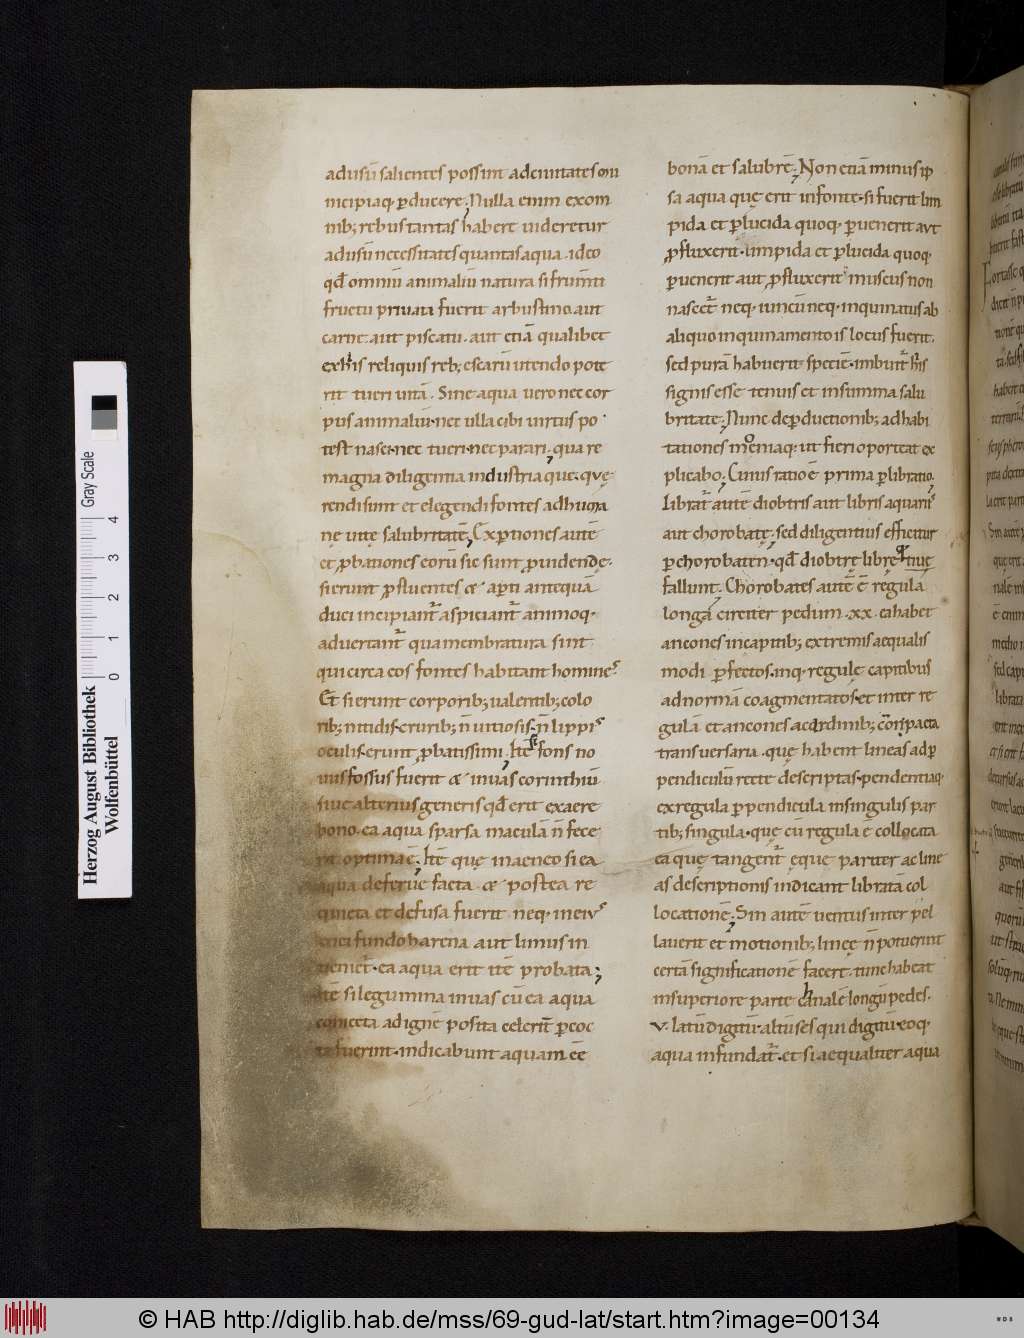 adusū salientes possint adciuitates mu
incipiaq; p̱ducere. Nulla enim exom
nib; rebus tantas habere uideretur
adusū necessitates quantas aqua. ideo
qđ omniū animaliū natura si frum̄ti
fructu priuata fuerit arbustiuo aut
carne. aut piscatu. aut etiā qualibet
ex his reliquis reb; escarū utendo pote
rit tueri uitā. Sine aqua uero nec cor
pus animaliū nec ulla cibi uirtus po
test nasc. nec tueri. nec parari. qua re
magna diligentia industriaque. quę
rendi sunt et elegendi fontes ad humą
nę uitę salubritatē. Exp̱tiones autē
et p̱bationes eorū sic sunt p̱uidendę.
si erunt p̱fluentes & ap̱ti antequā
duci incipiant̄ aspiciant̄ animoq;
aduertant̄ qua membratura sint
qui circa eos fontes habitant homines
Et si erunt corporib; ualentib; colo
rib; nitidis. crurib; n̄ uitiosis. n̄ lippis
oculis. erunt p̱batissimi. Itē si fons no
uus fossus fuerit & in uas corinthiū
siue alterius generis qđ erit ex aere
bono. ea aqua sparsa maculā n̄ fece
rit optima ē. Itē quę in aeneo si ea
aqua deferue facta & postea re
quieta et defusa fuerit neq; in eius
enei fundo harena aut limus in
ueniet̄. ea aqua erit itē probata;
Itē si legumina in uas cū ea aqua
coniecta ad ignē posita celerit̄ p̱coc
ta fuerint. indicabunt aquam ēē
bonā et salubrē. Non etiā minus ip
sa aqua quę erit in fonte. si fuerit lim
pida et p̱lucida quoq; p̱uenerit aut
p̱fluxerit. limpida et p̱lucida quoq;
p̱uenerit aut p̱fluxerit muscus non
nascet̄ neq; iuncū neq; inquinatus ab
aliquo inquinamento is locus fuerit.
sed purā habuerit speciē. imbuit̄ his
signis esse tenuis et in summa salu
britate. Nunc de p̱ductionib; ad habi
tationes moeniaq; ut fieri oporteat ex
plicabo. Cuius ratio ē prima p̱libratio.
Librat̄ autē dioptris aut libris aquariis
aut chorobatę. sed diligentius efficitur
p̱ chorobaten. qđ dioptrę librę q; tiuę
fallunt. Chorobates autē ē regula
longa circiter pedum .xx. ea habet
ancones in capitib; extremis aequalis
modi perfectos. inq; regulę capitibus
ad normā coagmentatos. et inter re
gulā et ancones a cardinib; cōnpacta
transuersaria. quę habent lineas ad p̱
pendiculū recte descriptas. pendentiaq;
ex regula p̱pendicula in singulis par
tib; singula. quę cū regula ē collocata
ea quę tangent̄ ęque pariter ac line
as descriptionis indicant libratā col
locationē. Sin autē uentus inter pel
lauerit et motionib; lineę n̄ potuerint
certā significationē facere. tunc habeat
in superiore parte canalē longū pedes
.v. latū digitū. altū ses qui digitū. eoq;
aqua infundat̄. et si aequaliter aqua
Herzog August Bibliothek
Wolfenbüttel
0 1 2 3 4
Gray Scale
© HAB http://diglib.hab.de/mss/69-gud-lat/start.htm?image=00134